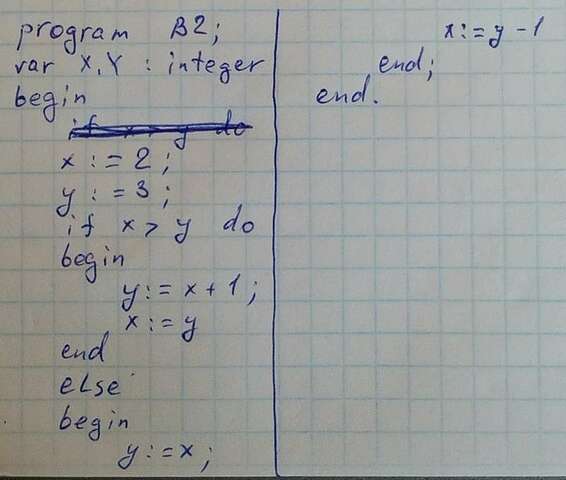 program B2;
var X, Y : integer
begin
if x > y do
x := 2;
y := 3;
if x > y do
begin
y := x + 1;
x := y
end
else
begin
y := x;
x := y - 1
end;
end.